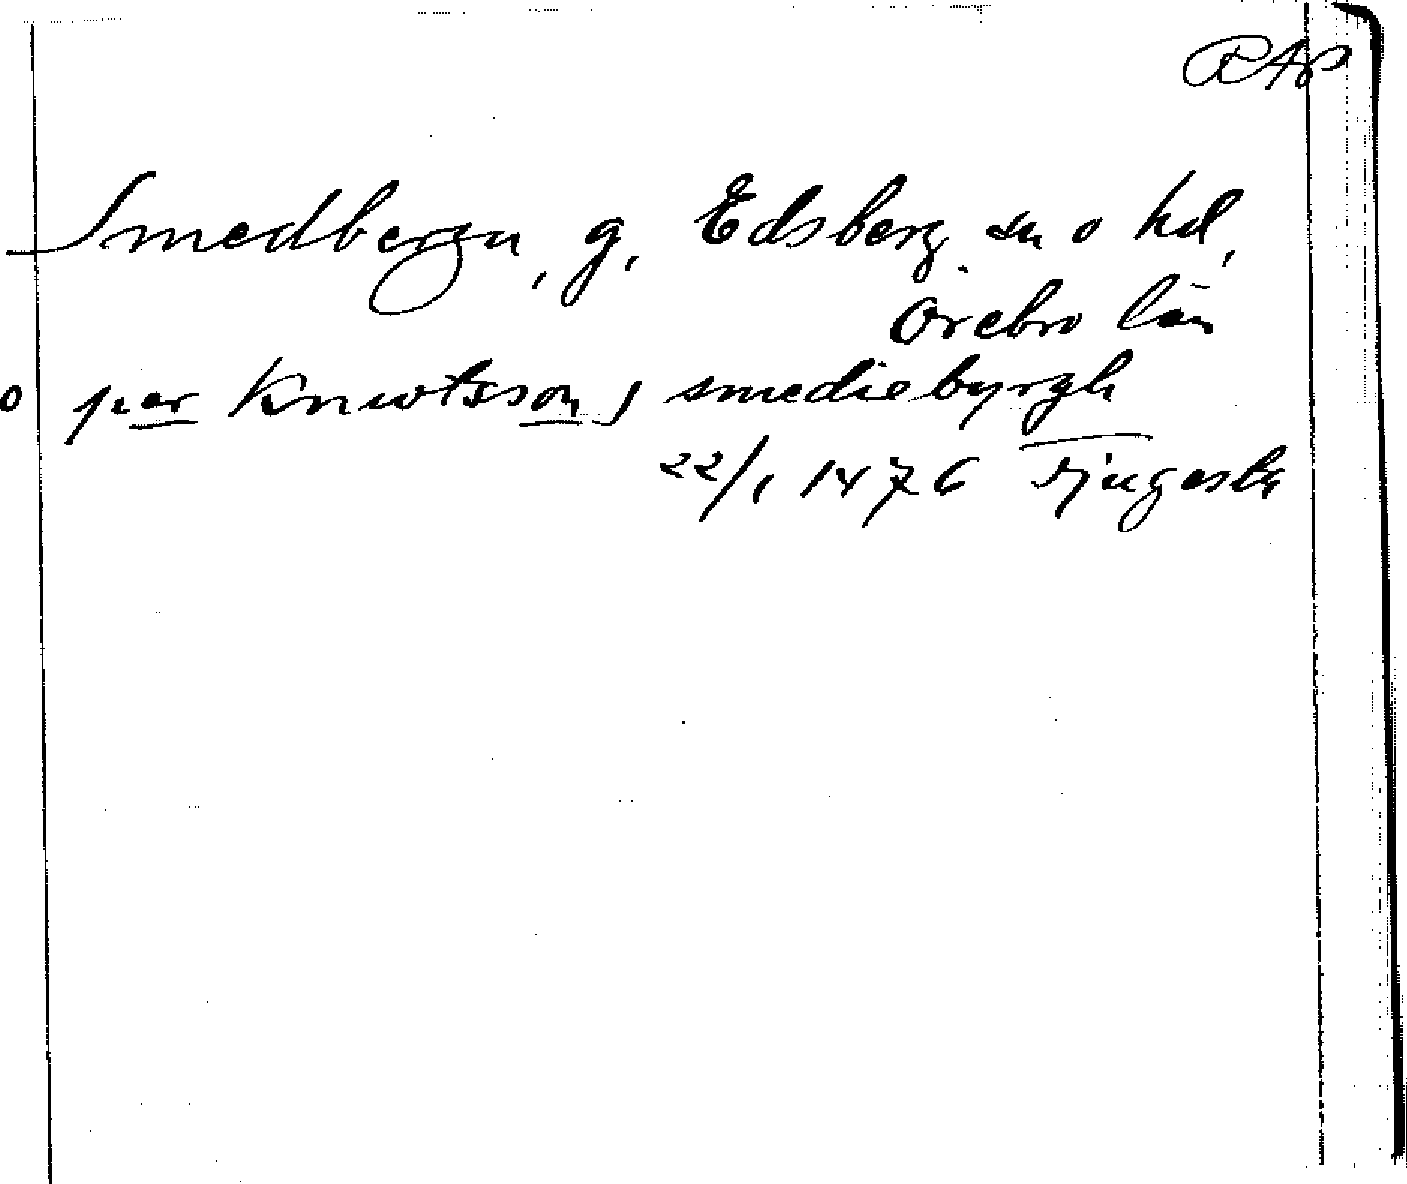 RAP
Smedbergen, g, Edsberg sn o hd,
Örebro län
o per Knwtsson j smediebyrgh
22/1 1476 Tjugesta